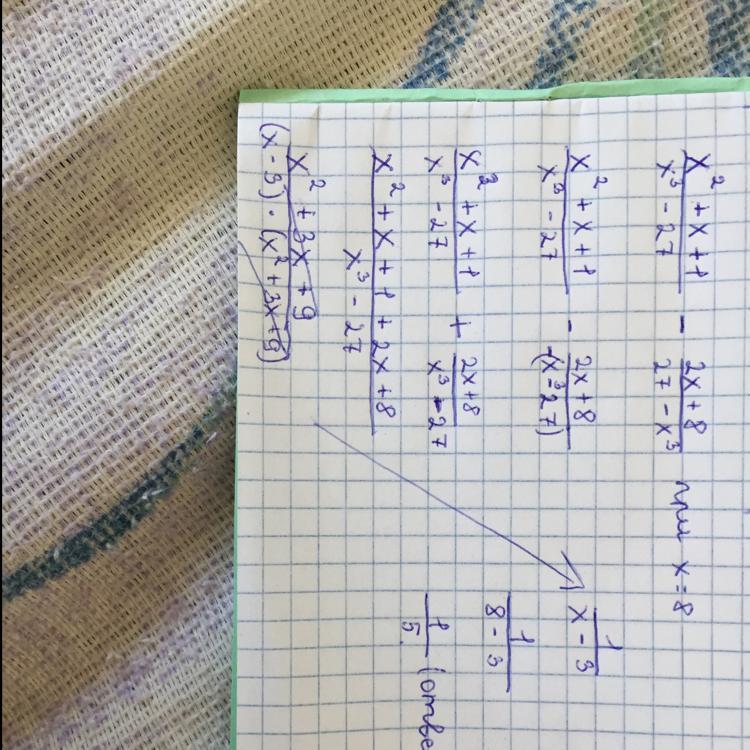 x² + x + 1 / x³ - 27 - 2x + 8 / 27 - x³ при x = 8
x² + x + 1 / x³ - 27 - 2x + 8 / -(x³ - 27)
x² + x + 1 / x³ - 27 + 2x + 8 / x³ - 27
x² + x + 1 + 2x + 8 / x³ - 27
x² + 3x + 9 / (x - 3) · (x² + 3x + 9)
1 / x - 3
1 / 8 - 3
1 / 5 (отве